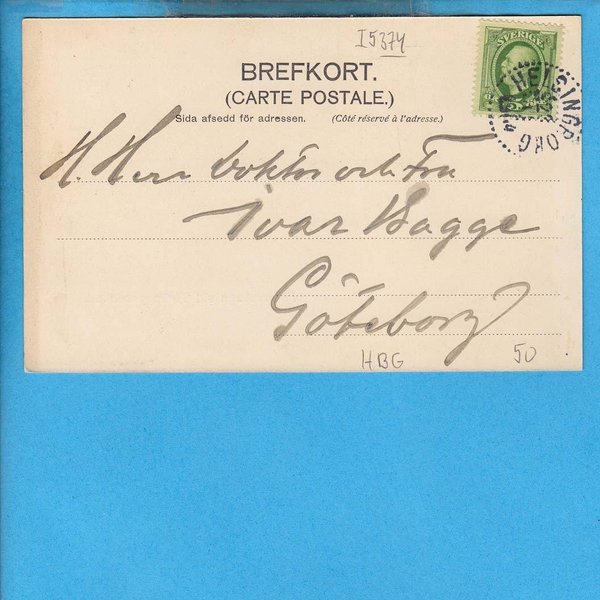 I5374
SVERIGE
HELSINGBORG
BREFKORT.
(CARTE POSTALE.)
Sida afsedd för adressen. (Côté réservé à l'adresse.)
H. Herr Doktor och Fru
Ivar Bagge
Göteborg
HBG 50